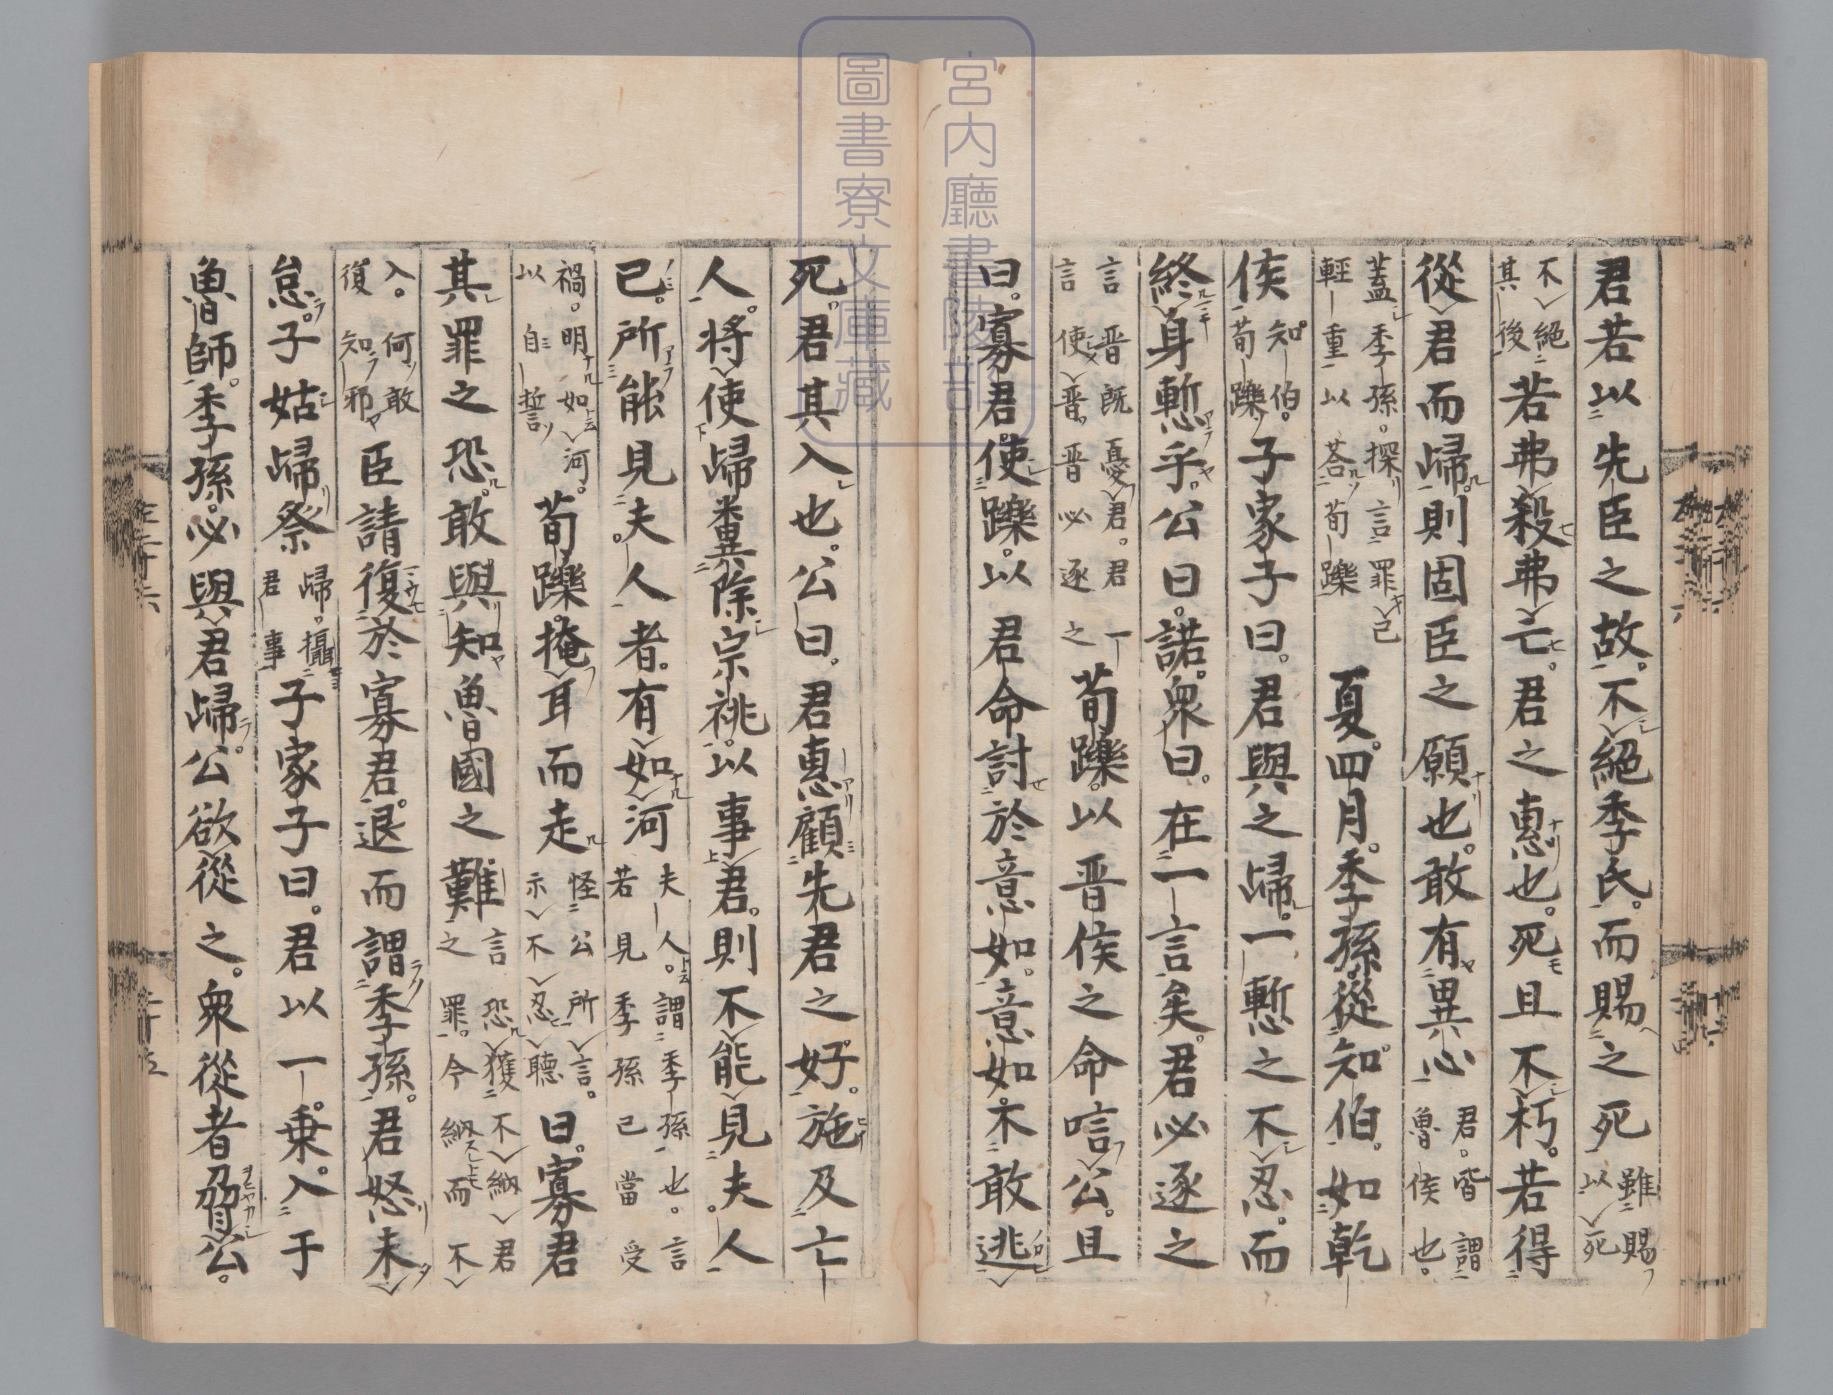 君若以先臣之故。不絕季氏。而賜之死雖賜以死
不絕其後若弗殺弗亡。君之惠也。死且不朽。若得
從君而歸。則固臣之願也。敢有異心君。皆謂魯侯也。
蓋季孫。探言罪己輕重以荅荀躒夏四月。季孫從知伯。如乾
侯知伯。荀躒子家子曰。君與之歸。一慙之不忍。而
終身慙乎。公曰。諾。衆曰。在一言矣。君必逐之
言晉既憂君。君一言使晉。晉必逐之荀躒。以晉侯之命唁公。且
曰。寡君。使躒。以君命討於意如。意如。不敢逃
死。君其入也。公曰。君惠顧先君之好。施及亡
人。將使歸糞除宗祧。以事君。則不能見夫人。
已。所能見夫人者。有如河夫人。謂季孫也。言若見季孫已當受
禍。明如河。以自誓荀躒。掩耳而走怪公所言。示不忍聽曰。寡君
其罪之恐。敢與知魯國之難言恐獲不納君之罪。今納而不
入。何敢復知邪臣請復於寡君。退而謂季孫。君怒未
怠。子姑歸祭歸。攝君事子家子曰。君以一乘。入于
魯師。季孫。必與君歸。公欲從之。衆從者脅公。
宮内廳書陵部
圖書寮文庫藏